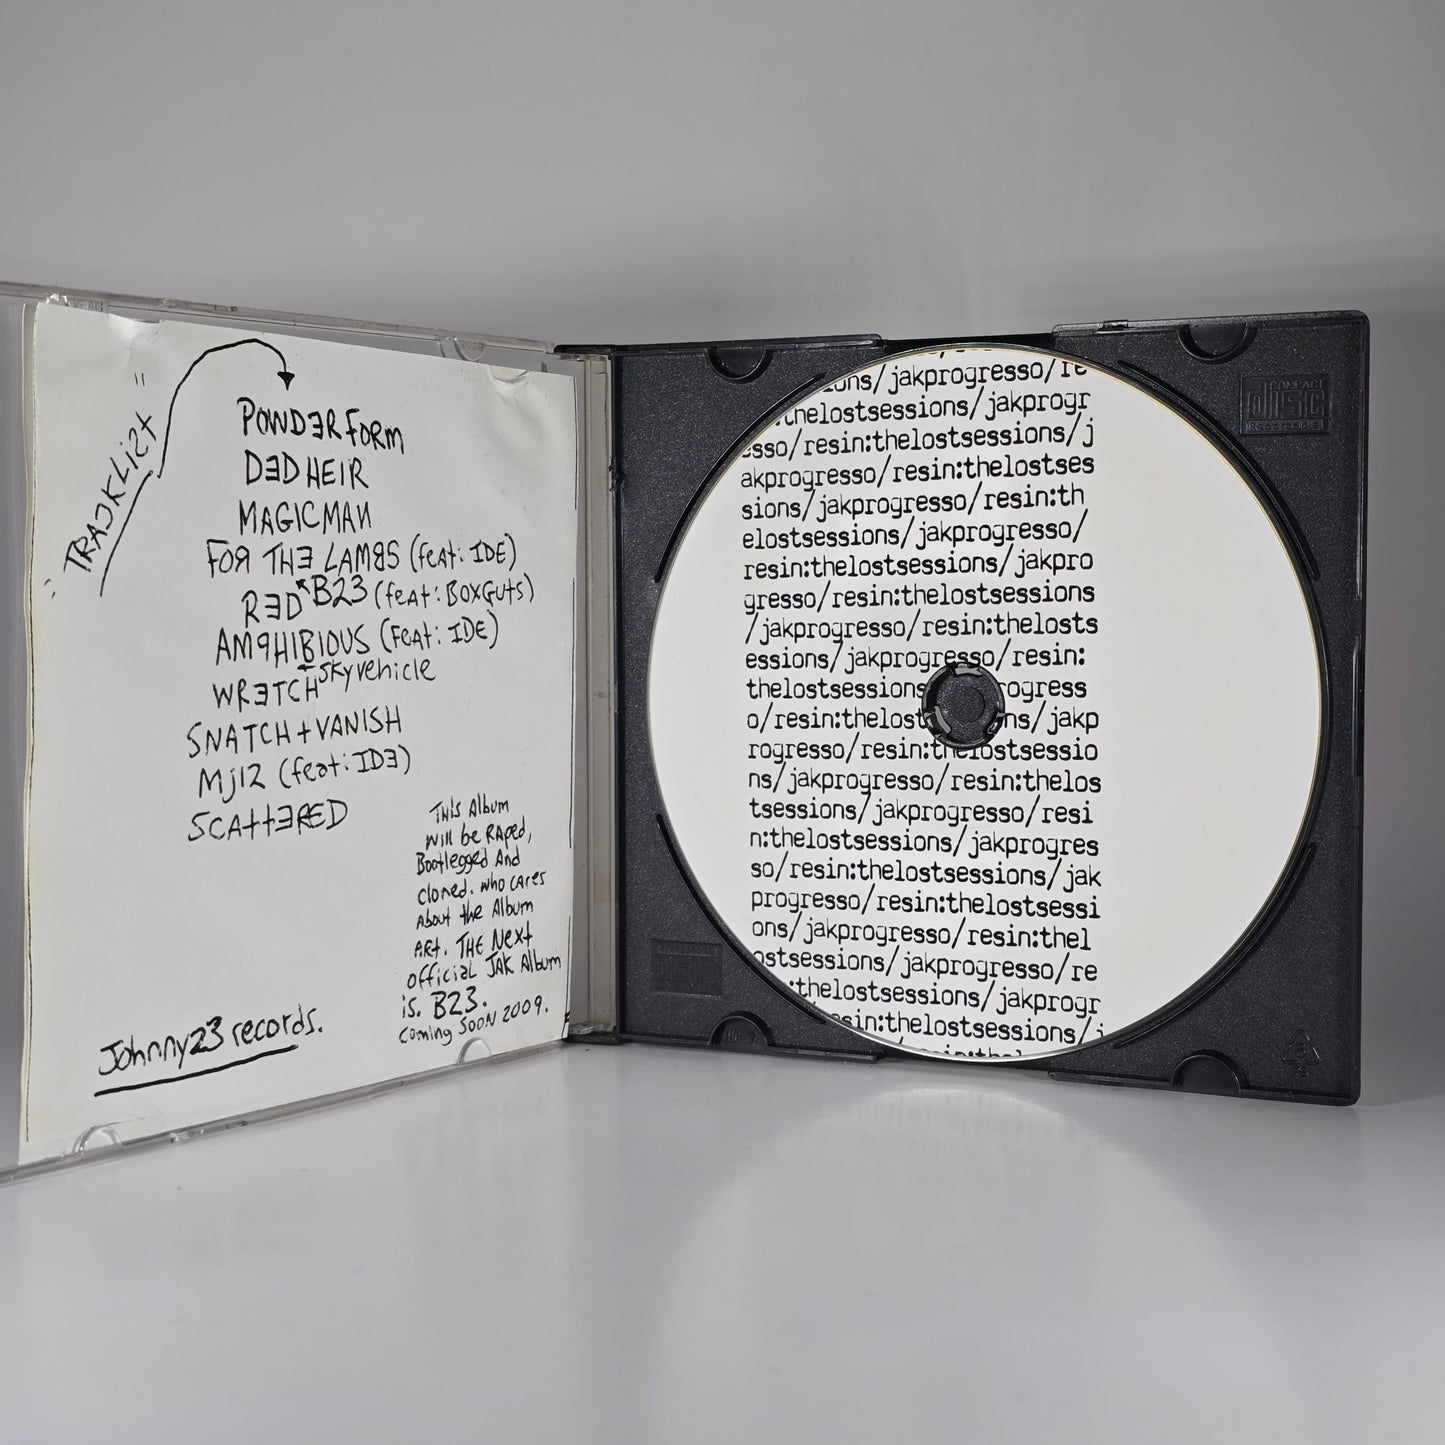 "TRACKLIST"
POWDERFORM
DEDHEIR
MAGICMAN
FOR THE LAMBS (feat: IDE)
B23 (feat: BOXGUTS)
RED
AMPHIBIOUS (feat: IDE)
SKYvehicle
WRETCH
SNATCH+VANISH
Mj12 (feat: IDE)
SCATTERED
THIS Album
will be RAped,
Bootlegged And
cloned. who cares
About the Album
Art. THE Next
official JAK Album
is. B23.
coming SOON 2009.
Johnny23 records.
ions/jakprogresso/re
:thelostsessions/jakprogr
esso/resin:thelostsessions/j
akprogresso/resin:thelostses
sions/jakprogresso/resin:th
elostsessions/jakprogresso/
resin:thelostsessions/jakpro
gresso/resin:thelostsessions
/jakprogresso/resin:thelosts
essions/jakprogresso/resin:
thelostsessions rogress
o/resin:thelost ns/jakp
rogresso/resin:thelostsessio
ns/jakprogresso/resin:thelos
tsessions/jakprogresso/resi
n:thelostsessions/jakprogres
so/resin:thelostsessions/jak
progresso/resin:thelostsessi
ons/jakprogresso/resin:thel
ostsessions/jakprogresso/re
:thelostsessions/jakprogr
sin:thelostsessions/j
COMPACT
disc
Recordable